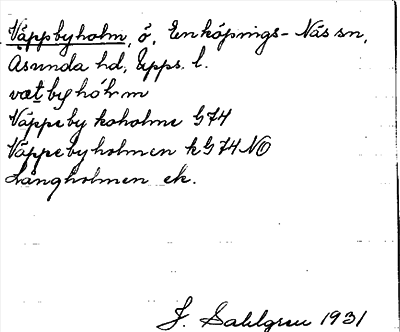 Väppbyholm, ö, Enköpings-Näs sn,
Åsunda hd, Upps. l.
vætbyhóļm
Väppeby koholme G74
Väppebyholmen k G74 NO
Långholmen ek.
J. Sahlgren 1931